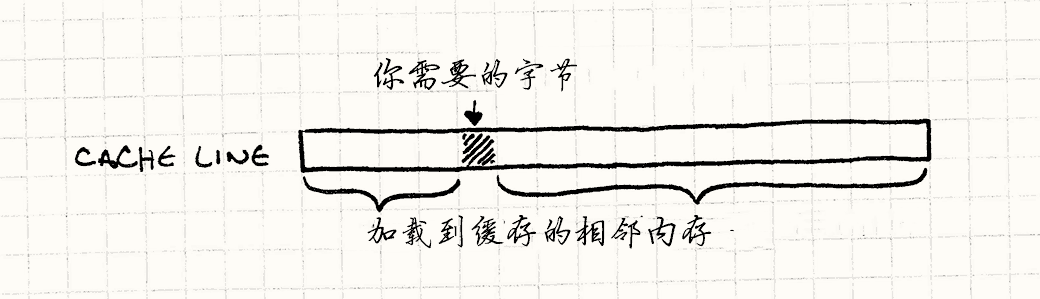 你需要的字节
CACHE LINE
加载到缓存的相邻内存